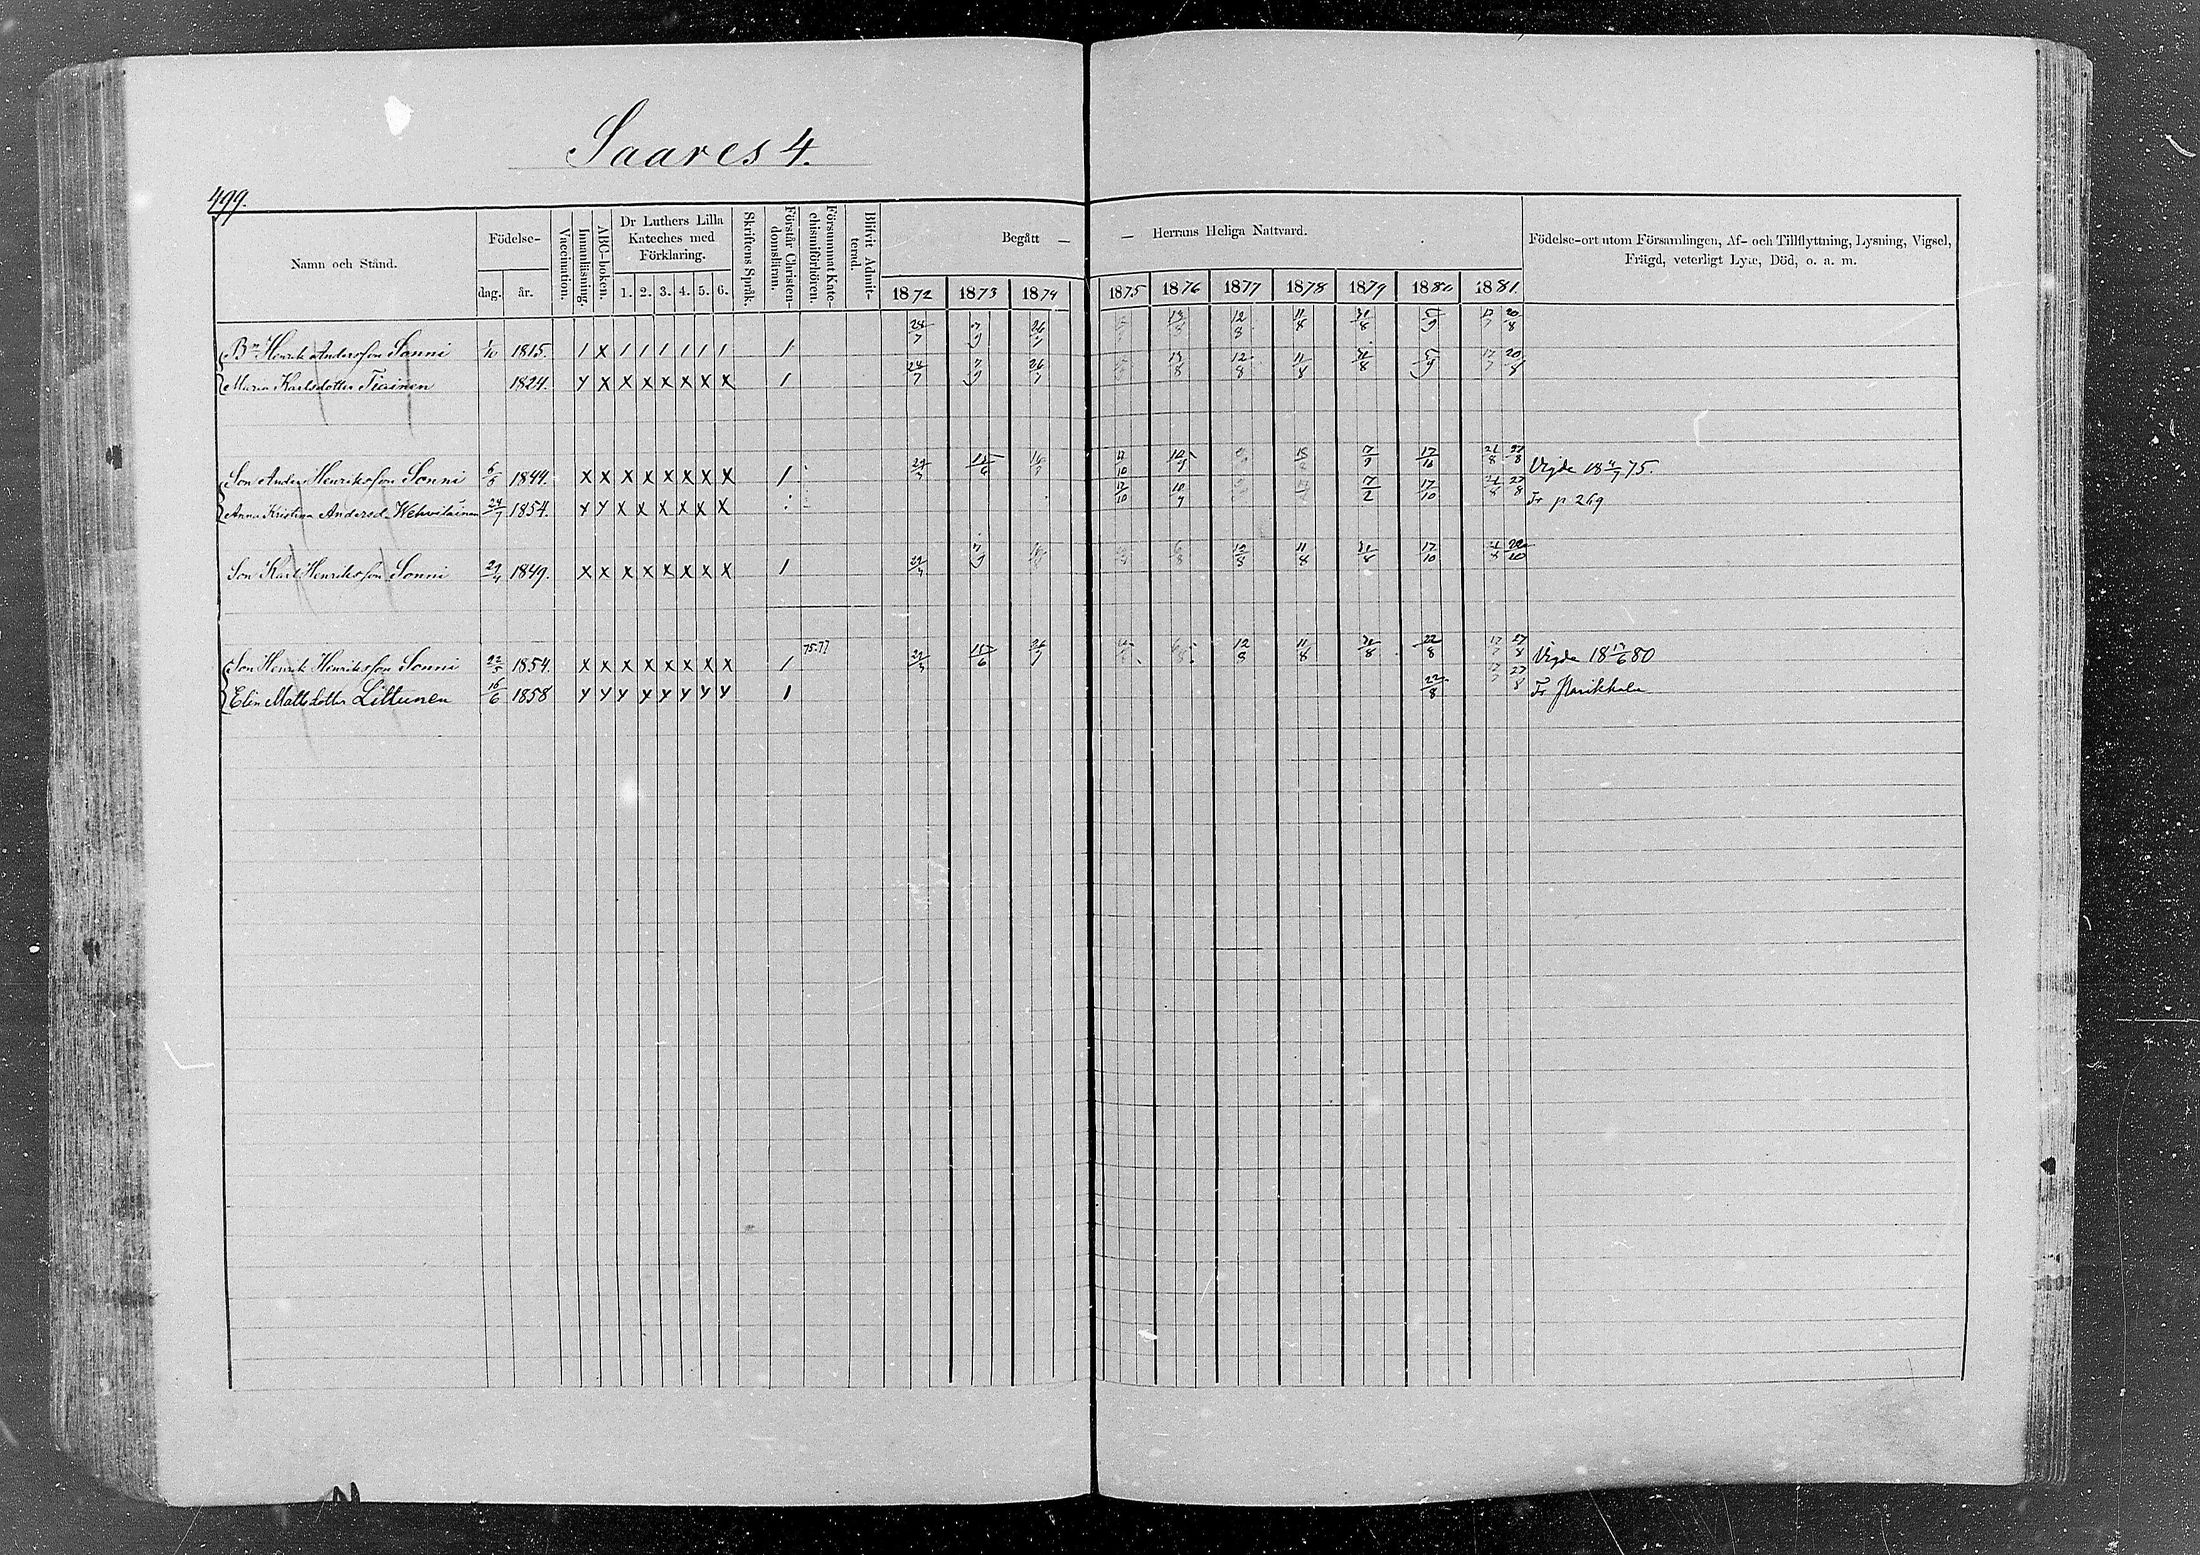 Saares 4.
499.
Namn och Stånd.
Födelse-
dag. år.
Vaccination.
Innanläsning.
ABC-boken.
Dr Luthers Lilla
Kateches med
Förklaring.
1. 2. 3. 4. 5. 6.
Skriftens Språk.
Förstår Christen-
domsläran.
Försummat Kate-
chismiförhören.
Blifvit Admit-
terad.
Begått — — Herrans Heliga Nattvard.
1872 1873 1874 1875 1876 1877 1878 1879 1880 1881
Födelse-ort utom Församlingen, Af- och Tillflyttning, Lysning, Vigsel,
Frägd, veterligt Lyte, Död, o. a. m.
Bn Henrik Andersson Sonni 1/10 1815. / X / / / / / / / 24/7 7/9 26/7 13/8 12/8 11/8 31/8 5/9 17/7 20/8
Maria Karlsdotter Tiainen 1824. Y X X X X X X X / 24/7 7/9 26/7 13/8 12/8 11/8 31/8 5/9 17/7 20/8
Son Anders Henriksson Sonni 6/5 1844. X X X X X X X X / 15/6 17/10 10/9 7/9 17/10 21/8 27/8 Vigde 18 4/7 75.
Anna Kristina Andersd. Wehviläinen 24/7 1854. Y Y X X X X X X 17/10 10/9 17/2 17/10 21/8 27/8 Fr p 269
Son Karl Henriksson Sonni 27/4 1849. X X X X X X X X / 7/9 6/8 12/8 11/8 31/8 17/10 21/8 22/10
Son Henrik Henriksson Sonni 22/5 1854. X X X X X X X X / 75.77 15/6 26/7 12/8 11/8 31/8 22/8 17/7 27/8 Vigde 18 17/6 80
Elin Mattsdotter Littunen 16/6 1858 Y Y Y Y Y Y Y Y / 22/8 17/7 27/8 Fr Parikkala